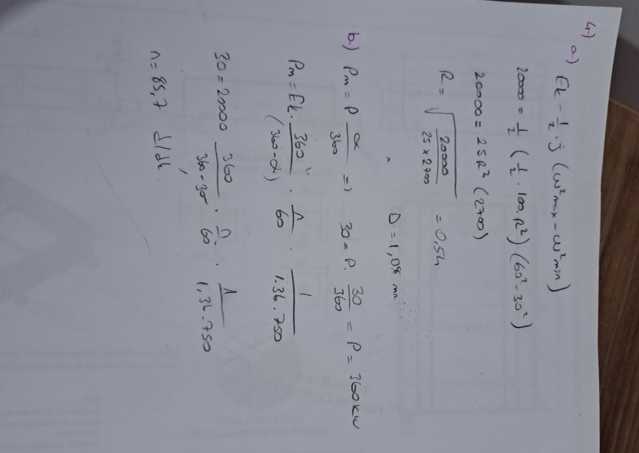 4) a) Ek = 1/2 . j (ω²max - ω²min)
20000 = 1/2 (1/2 . 100 . R²) (60² - 30²)
20000 = 25R² (2700)
R = √(20000 / 25x2700) = 0,54
D = 1,08 m
b.) Pm = P α/360 => 30 = P. 30/360 = P = 360kw
Pm = Ek . 360/(360-α) . n/60 . 1/1.36.750
30 = 20000 360/360-30 . n/60 . 1/1,36.750
n = 85,7 d/dk